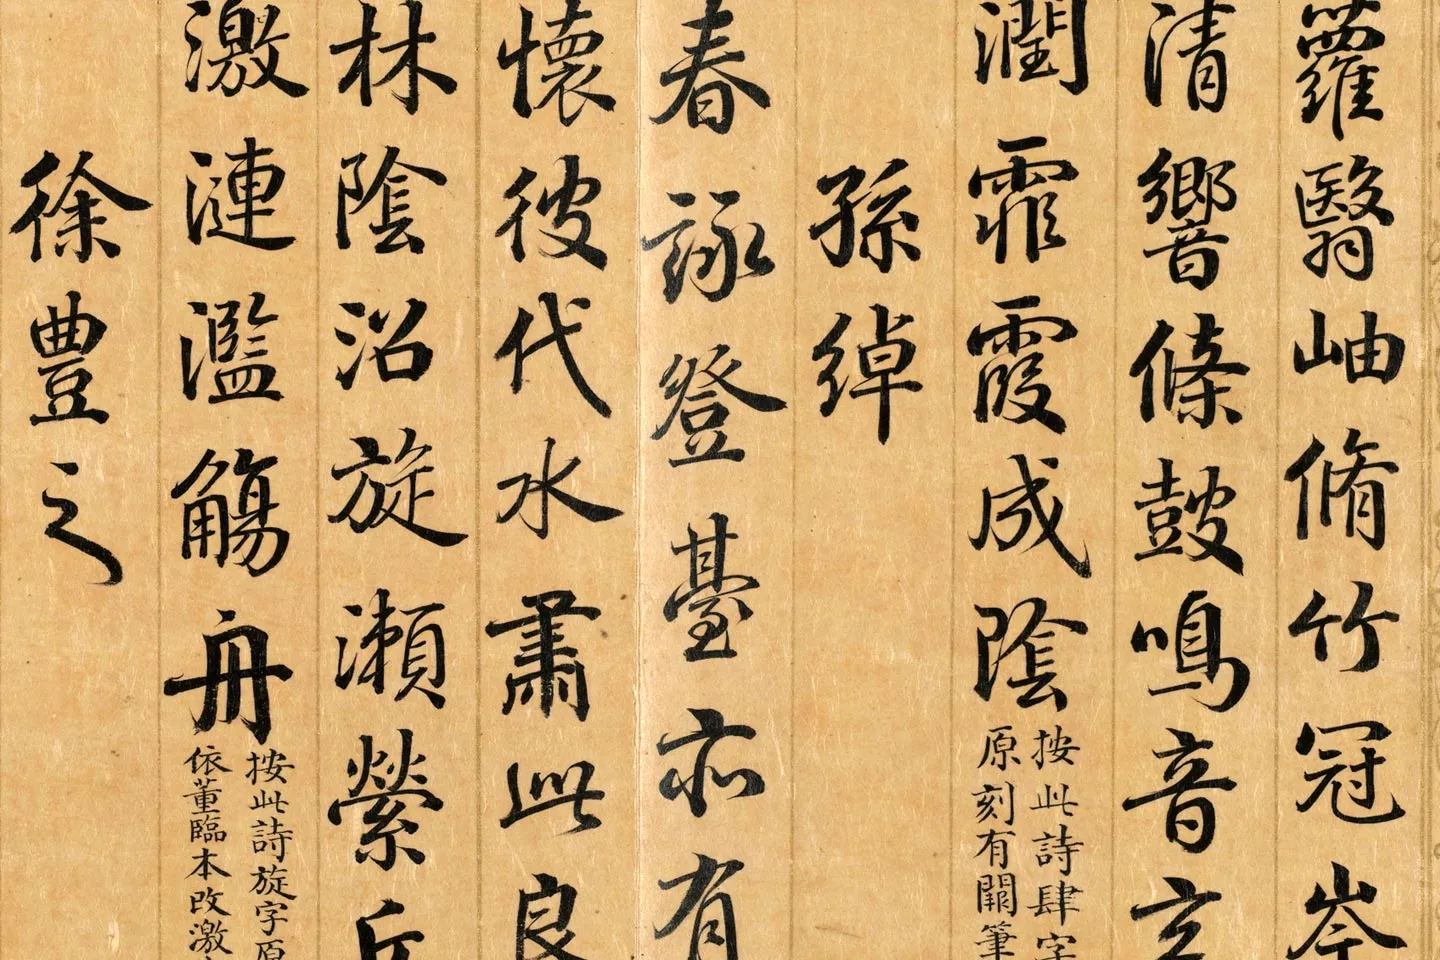 蘿翳岫脩竹冠岑
清響條鼓鳴音玄
潤霏霞成陰
按此詩肆字
原刻有闕筆
孫綽
春詠登臺亦有
懷彼代水肅此良
林陰沿旋瀨縈丘
激漣濫觴舟
按此詩旋字原
依董臨本改激
徐豊之